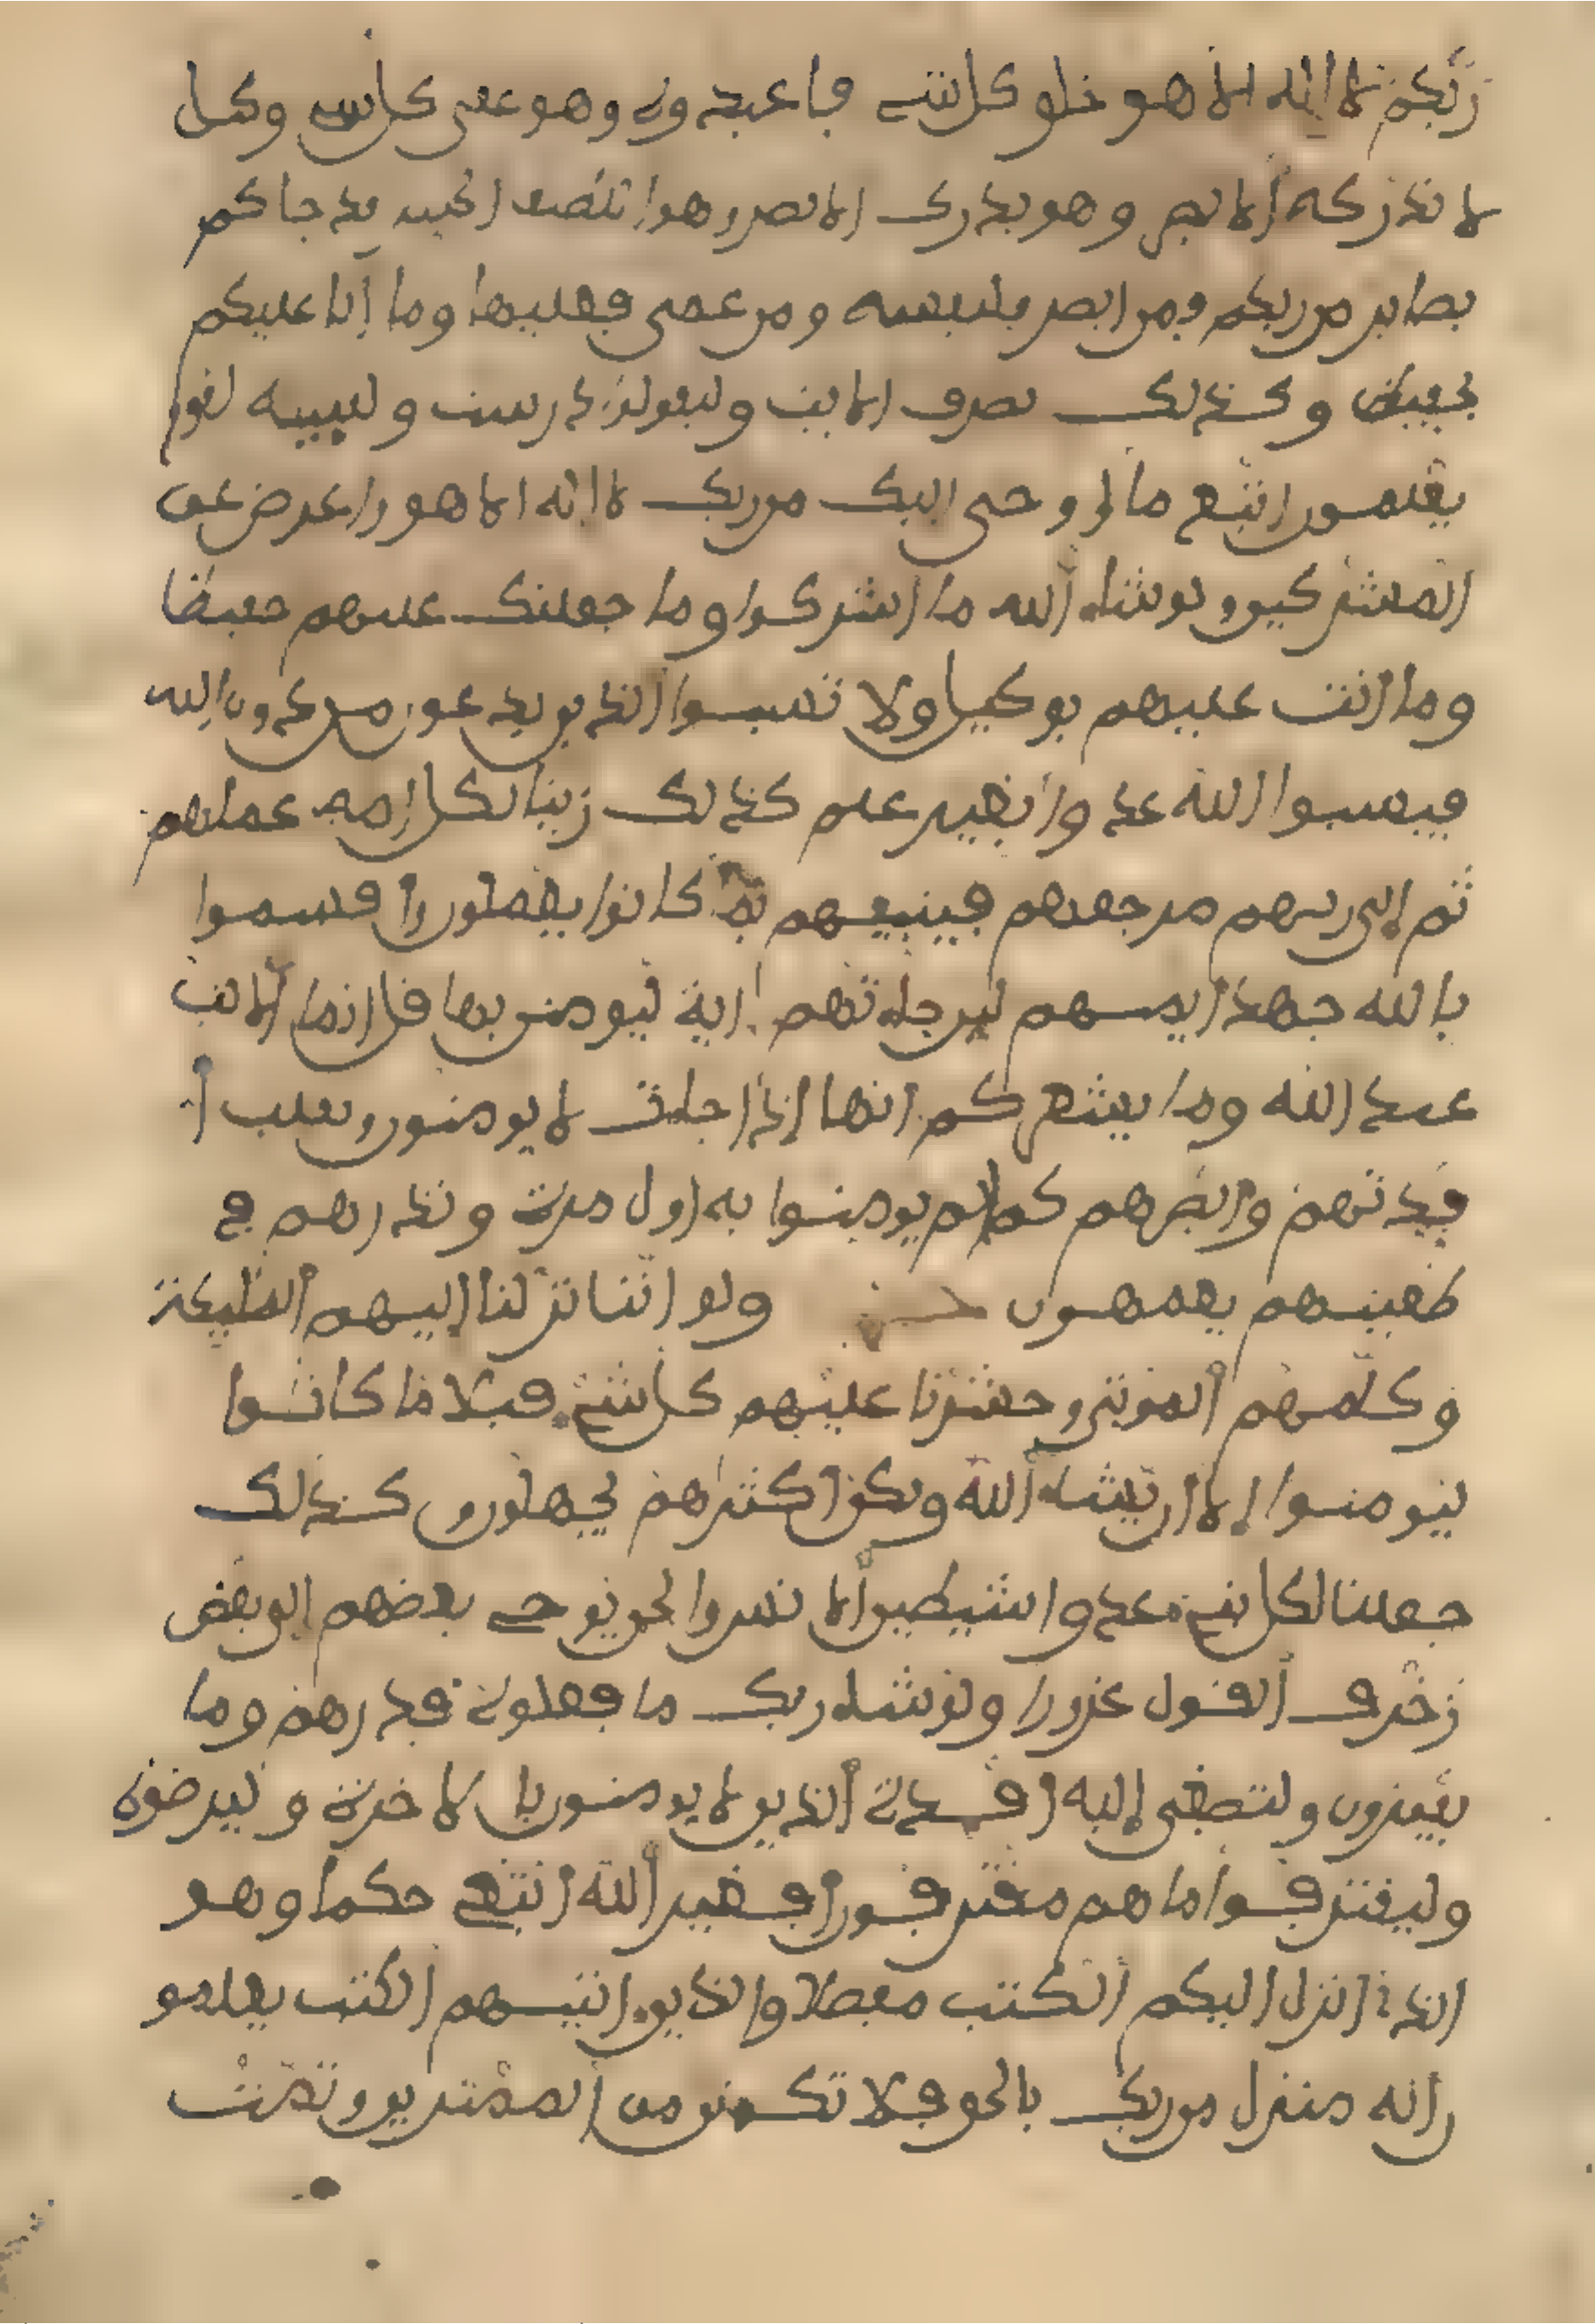 ربكم لا اله الا هو خلو كل شي فاعبدوه وهو على كل شي وكيل
لا تدركه الابصر وهو يدرك الابصر وهو اللطيف الخبير قد جاكم
بصاير من ربكم فمن ابصر فلنفسه ومن عمى فعليها وما انا عليكم
بحفيظ وكذلك نصرف الايت وليقولوا درست ولنبينه لقوم
يعلمون اتبع ما اوحى اليك من ربك لا اله الا هو واعرض عن
المشركين ولو شاء الله ما اشركوا وما جعلنك عليهم حفيظا
وما انت عليهم بوكيل ولا تسبوا الذين يدعون من دون الله
فيسبوا الله عدوا بغير علم كذلك زينا لكل امة عملهم
ثم الى ربهم مرجعهم فينبيهم بما كانوا يعملون واقسموا
بالله جهد ايمنهم لين جاءتهم اية ليومنن بها قل انما الايت
عند الله وما يشعركم انها اذا جاءت لا يومنون ونقلب ا
فدتهم وابصرهم كما لم يومنوا به اول مرة ونذرهم في
طغينهم يعمهون حزب ولو اننا نزلنا اليهم المليكة
وكلمهم الموتى وحشرنا عليهم كل شيء قبلا ما كانوا
ليومنوا الا ان يشاء الله ولكن اكثرهم يجهلون وكذلك
جعلنا لكل نبيء عدوا شيطين الانس والجن يوحي بعضهم الى بعض
زخرف القول غرورا ولو شاء ربك ما فعلوه فذرهم وما
يفترون ولتصغى اليه افدة الذين لا يومنون بالاخرة وليرضوه
وليقترفوا ما هم مقترفون افغير الله ابتغي حكما وهو
الذي انزل اليكم الكتب مفصلا والذين اتينهم الكتب يعلمو
ن انه منزل من ربك بالحق فلا تكونن من الممترين وتمت